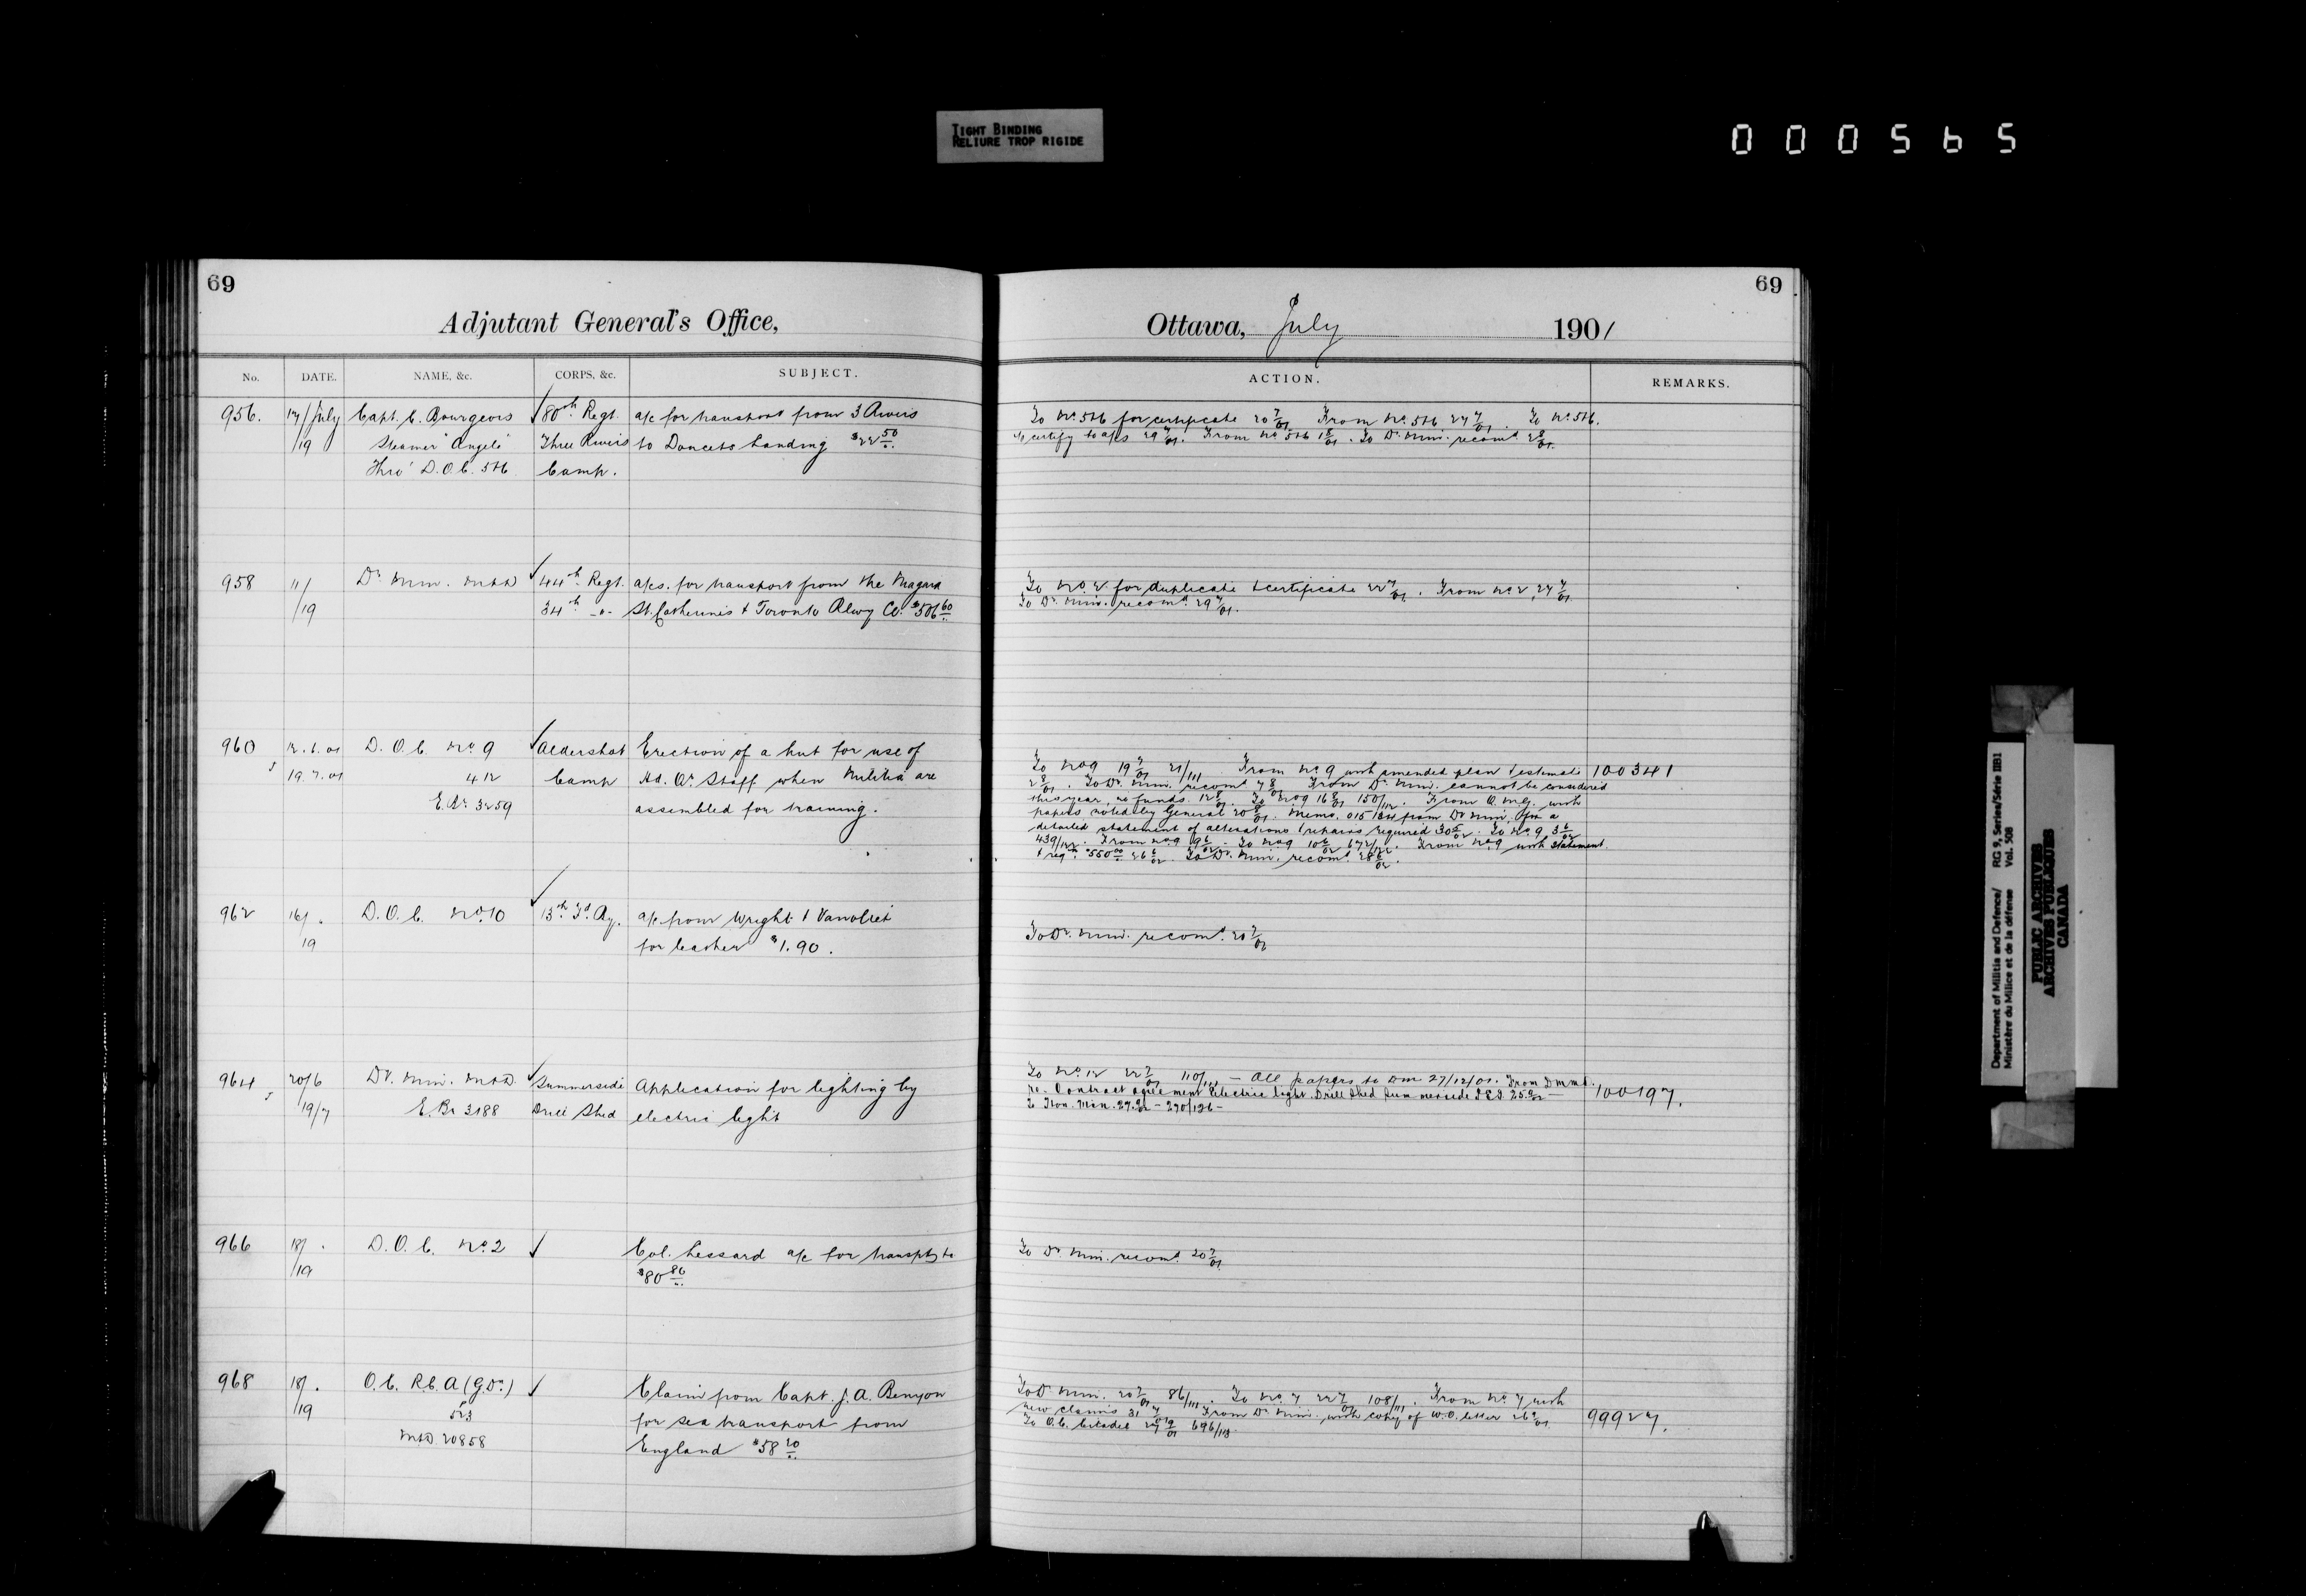 TIGHT BINDING
RELIURE TROP RIGIDE
000565
69
Adjutant General's Office,
No. DATE. NAME, &c. CORPS, &c. SUBJECT.
956. 17/July Capt. C. Bourgeois ✓ 80th Regt. a/c for transport from 3 Rivers
/19 Steamer "Angele" Three Rivers to Doucets Landing $22 50/..
Thro' D.O.C. 5&6 Camp.
958 11/ Dy. Min. M&D ✓ 44th Regt. a/cs. for transport from the Niagara
/19 34th -o- St. Catherines & Toronto Rlwy Co. $506 60/..
960 12.6.01 D.O.C. No. 9 ✓ Aldershot Erection of a hut for use of
19.7.01 412 Camp Hd. Qr. Staff when Militia are
3259 assembled for training.
962 16/. D.O.C. No. 10 ✓ 13th Fd. By. a/c from Wright & Vanvliet
19 for leather $1.90.
964 20/6 Dy. Min. M&D. ✓ Summerside Application for lighting by
19/7 3188 Drill Shed electric light
966 18/. D.O.C. No. 2 ✓ Col. Lessard a/c for
/19 $80 86/..
968 18/. O.C. R.C.A (G.Dn.) ✓ Claim from Capt. J. A. Benyon
/19 523 for sea transport from
M&D. 20858 England $58 20/..
69
Ottawa, July 1901
ACTION. REMARKS.
To No. 5&6 for certificate 20 7/01. From No. 5&6 27 7/01. To No. 5&6.
to certify to a/cs 29 7/01. From No. 5&6 1 8/01. To Dy. Min. recomd. 2 8/01.
To No. 2 for duplicate & certificate 22 7/01. From No. 2, 27 7/01.
To Dy. Min. recomd. 29 7/01.
To No 9 19 7/01 21/111 From No. 9 with amended plan & estimate 100341
2 8/01. To Dy. Min. recomd. 7 8/01 From Dy. Min. cannot be considered
this year, no funds. 12 8/01. To No 9 16 8/01 150/112. From Q.M.G. with
papers noted by General 20 8/01. Memo. from Dy. Min. for a
detailed statement of alterations & repairs required 30 5/02. To No. 9 3 6/02
439/122. From No 9 9 6/02. To No 9 10 6/02 672/122. From No. 9 with statement
& reqn. $550 00 26 6/02. To Dy. Min. recomd. 28 6/02.
To Dy. Min. recomd. 20 7/01
To No. 12 22 7/01 110/111 — All papers to Dm 27/12/01. From D.M.M.D.
re. Contract agreement Electric light. Drill Shed Summerside P.E.I. — 100197.
To Hon. Min. 270/126 —
To Dy. Min. recomd. 20 7/01
To Dy. Min. 20 7/01 86/111. To No. 7 22 7/01 108/111. From No. 7 with
new claims 31 7/01 From Dy. Min. with copy of W.O. letter 26 9/01. 99927.
To O.C. Citadel 696/113
Department of Militia and Defence/ RG 9, Series/Série IIB1
Ministère du Milice et de la défense Vol. 508
PUBLIC ARCHIVES
ARCHIVES PUBLIQUES
CANADA